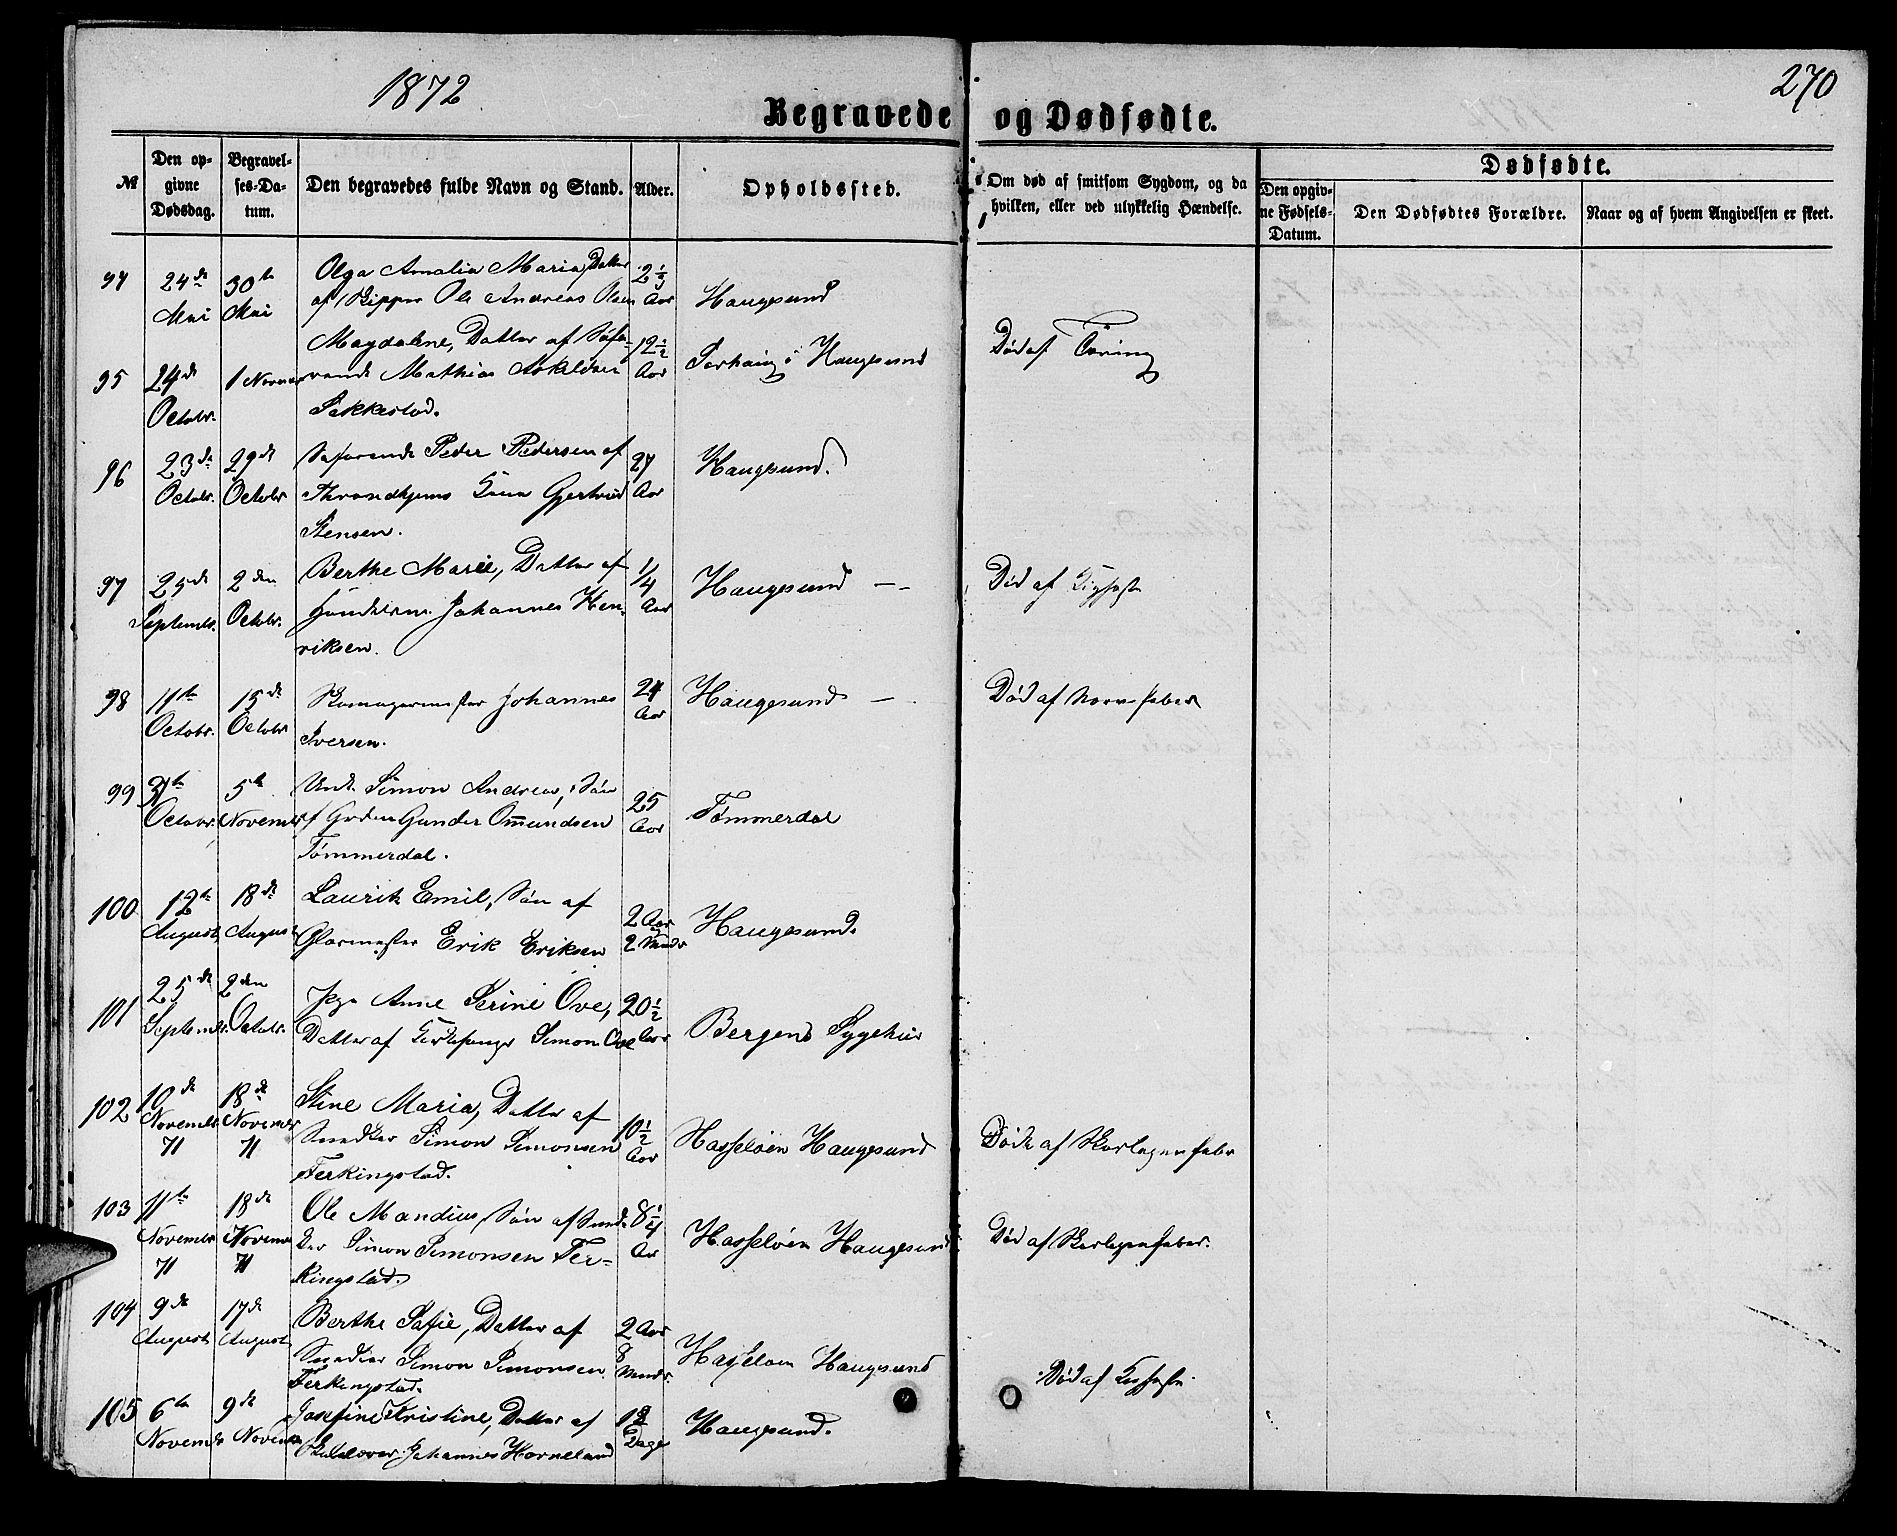 1872
270
Begravede og Dødfødte.
№
Den opgivne Dødsdag.
Begravelses-Datum.
Den begravedes fulde Navn og Stand.
Alder.
Opholdssted.
Om død af smitsom Sygdom, og da hvilken, eller ved ulykkelig Hændelse.
Dødfødte.
Den opgivne Fødsels-Datum.
Den Dødfødtes Forældre.
Naar og af hvem Angivelsen er skeet.
94 24de 30te Olga Amalia Maria, Datter 2 1/3
Mai Mai af Skipper Ole Andreas Olsen Aar Haugesund
Magdalene, Datter af Søfa- 12 1/2
95 24de 1 Novembr rende Mathias Askildsen Aar i Haugesund Død af Tæring
Octobr. Sakkestad.
96 23de 29de Søfarende Peder Pedersen af 27 Haugesund.
Octobr. Octobr Throndhjems Gjertrud Aar
Stensen.
97 25de 2den Berthe Marie, Datter af 1/4 Haugesund Død af Kighoste
Septembr. Octobr. Johannes Hen- Aar
riksen.
98 11te 15de Skomagermester Johannes 24 Haugesund Død af Nervefeber
Octobr. Octobr Iversen. Aar
99 31te 5te Unk. Simon Andreas, Søn 25
Octobr. Novembr af Gunder Ommundsen Aar Tømmerdal
Tømmerdal.
100 12te 18de Laurits Emil, Søn af 2 Aar Haugesund.
August August Glarmester Erik Eriksen 2 Maandr
101 25de 2den Pige Anne Serine Ove, 20 1/2
Septembr. Octobr. Datter af Simon Ove Aar Bergens Sygehus
102 10de 18de Stine Maria, Datter af 10 1/2
Novembr Novembr Snedker Simon Simonsen Aar Hasseløen Haugesund Døde af Skarlagenfeber
71 71 Ferkingstad.
103 11te 18de Ole Mandius, Søn af Sned- 8 1/4
Novembr Novembr ker Simon Simonsen Fer- Aar Hasseløen Haugesund Død af Skarlagenfeber.
71 71 kingstad.
104 9de 17de Berthe Sofie, Datter af 2 Aar
August August Snedker Simon Simonsen 8 Maandr. Hasseløen Haugesund Død af Kighoste.
Ferkingstad.
105 6te 9de Josefine Kristine, Datter af Dage Haugesund.
Novembr Novembr Johannes Horneland